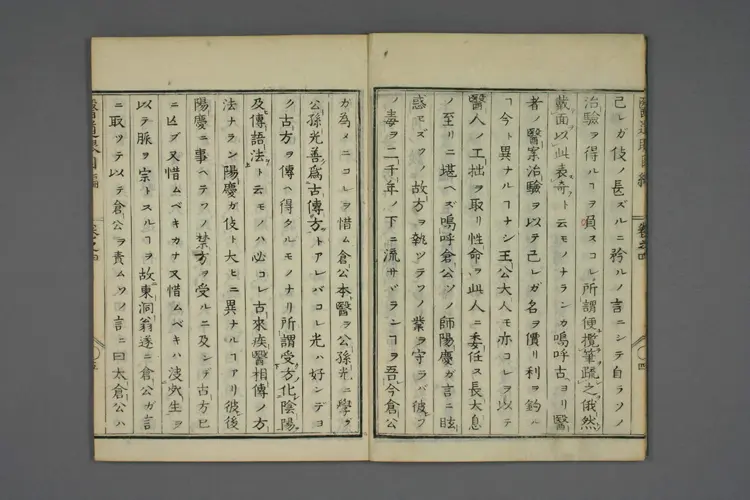 己レガ伎ノ長ズルニ矜ルノ言ニシテ自ラソノ
治驗ヲ得ルヿヲ負スコレ所謂便攬筆疏之俄然
戴面以此表奇ト云モノナランカ嗚呼古ヨリ醫
者ノ醫案治驗ヲ以テ己レガ名ヲ價リ利ヲ釣ル
ヿ今ト異ナルヿナシ王公大人モ亦コレヲ以テ
醫人ノ工拙ヲ取リ性命ヲ此人ニ委任ス長大息
ノ至リニ堪ヘズ嗚呼倉公ソノ師陽慶ガ言ニ眩
惑モズソノ故方ヲ執ツラソノ業ヲ守ラバ彼ノ
ノ毒ヲ二千年ノ下ニ流サヾランヿヲ吾今倉公
ガ為メニコレヲ惜ム倉公本醫ヲ公孫光ニ學ブ
公孫光善爲古傳方トアレバコレ光ハ好ンデヨ
ク古方ヲ傳ヘ得タルモノナリ所謂受方化陰陽
及傳語法ト云モノハ必コレ古來疾醫相傳ノ方
法ナラン陽慶ガ伎ト大ヒニ異ナルヿアリ彼後
陽慶ニ事ヘテソノ禁方ヲ受ルニ及ンデ古方已
ニ亡ブ又惜ムベキカナ又惜ムベキハ淺穴生ヲ
以テ脈ヲ宗トスルヿヲ故東洞翁遂ニ倉公ガ言
ニ取ツテ以テ倉公ヲ責ムソノ言ニ曰太倉公ハ